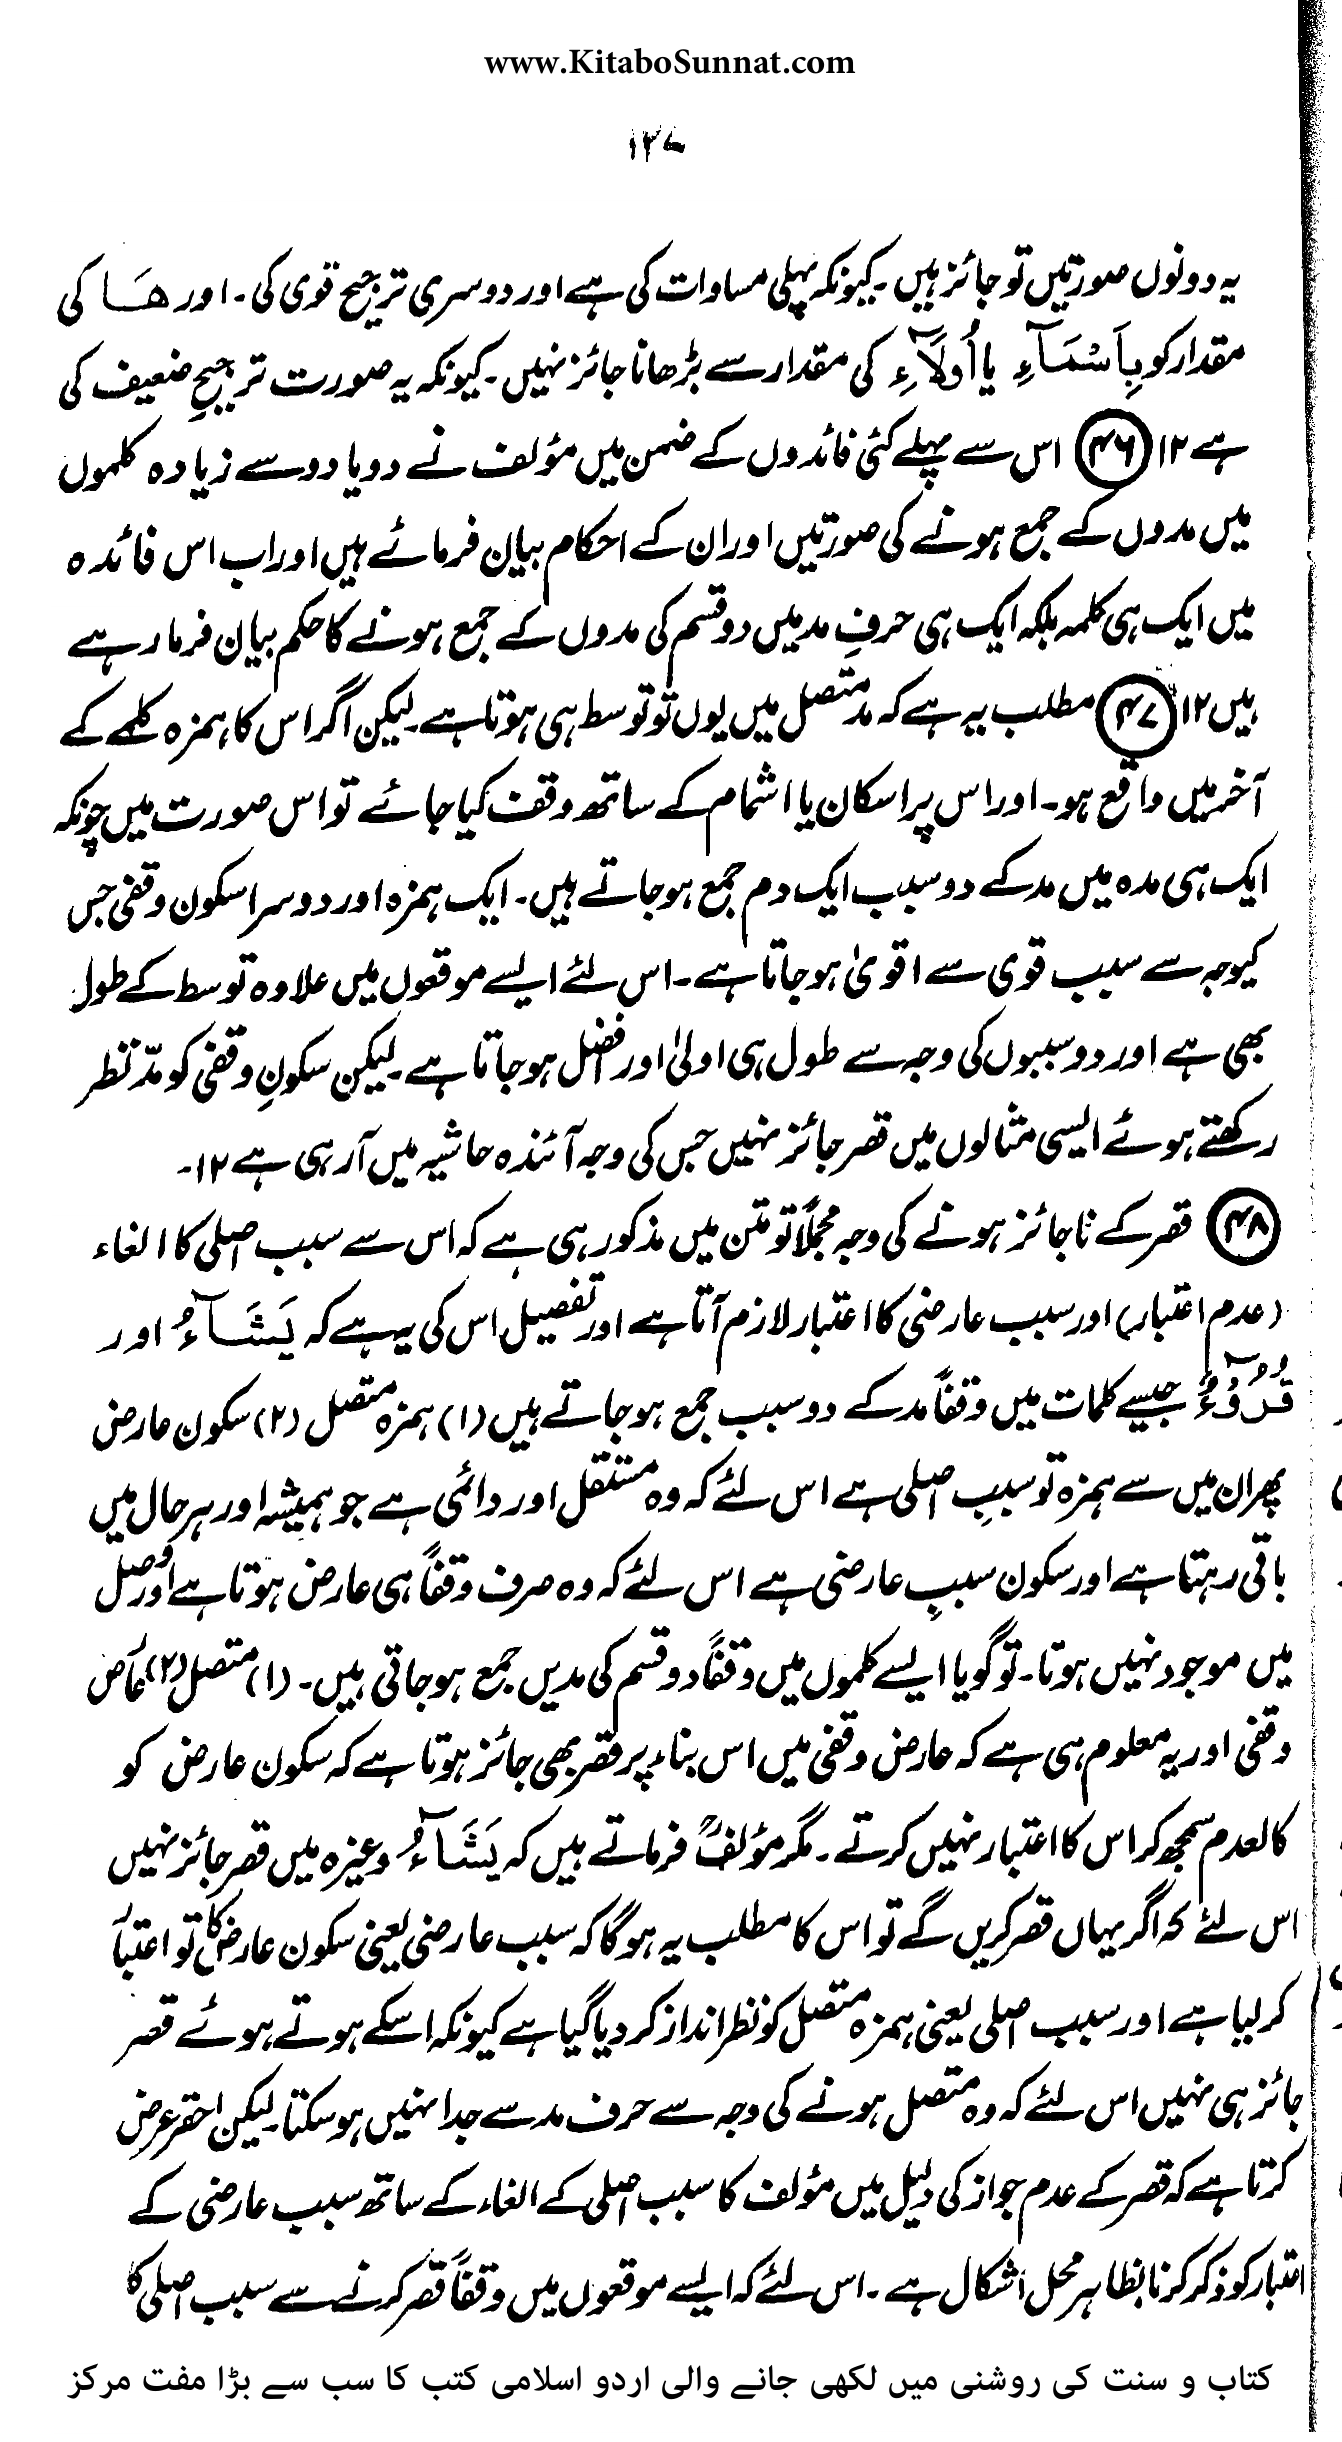 www.KitaboSunnat.com
۱۲۷
یہ دونوں صورتیں تو جائز ہیں۔ کیونکہ پہلی مساوات کی ہے اور دوسری ترجیح قوی کی۔ اور ھَا کی
مقدار کو بِاَسْمَآءِ یا اُولَآءِ کی مقدار سے بڑھانا جائز نہیں۔ کیونکہ یہ صورت ترجیحِ ضعیف کی
ہے ۱۲ (۴۶) اس سے پہلے کئی فائدوں کے ضمن میں مؤلف نے دو یا دو سے زیادہ کلموں
میں مدوں کے جمع ہونے کی صورتیں اور ان کے احکام بیان فرمائے ہیں اور اب اس فائدہ
میں ایک ہی کلمہ بلکہ ایک ہی حرفِ مد میں دو قسم کی مدوں کے جمع ہونے کا حکم بیان فرما رہے
ہیں ۱۲ (۴۷) مطلب یہ ہے کہ مد متصل میں یوں تو توسط ہی ہوتا ہے۔ لیکن اگر اس کا ہمزہ کلمے کے
آخر میں واقع ہو۔ اور اس پر اسکان یا اشمام کے ساتھ وقف کیا جائے تو اس صورت میں چونکہ
ایک ہی مدہ میں مد کے دو سبب ایک دم جمع ہو جاتے ہیں۔ ایک ہمزہ اور دوسرا سکون وقفی جس
کیوجہ سے سبب قوی سے اقویٰ ہو جاتا ہے۔ اس لئے ایسے موقعوں میں علاوہ توسط کے طول
بھی ہے اور دو سببوں کی وجہ سے طول ہی اولیٰ اور افضل ہو جاتا ہے۔ لیکن سکونِ وقفی کو مدّ نظر
رکھتے ہوئے ایسی مثالوں میں قصر جائز نہیں جس کی وجہ آئندہ حاشیہ میں آ رہی ہے ۱۲۔
(۴۸) قصر کے ناجائز ہونے کی وجہ مجملاً تو متن میں مذکور ہی ہے کہ اس سے سبب اصلی کا الغاء
(عدم اعتبار) اور سبب عارضی کا اعتبار لازم آتا ہے اور تفصیل اس کی یہ ہے کہ یَشَآءُ اور
قُرُوْٓءٌ جیسے کلمات میں وقفاً مد کے دو سبب جمع ہو جاتے ہیں (۱) ہمزہ متصل (۲) سکون عارض
پھر ان میں سے ہمزہ تو سببِ اصلی ہے اس لئے کہ وہ مستقل اور دائمی ہے جو ہمیشہ اور ہر حال میں
باقی رہتا ہے اور سکون سببِ عارضی ہے اس لئے کہ وہ صرف وقفاً ہی عارض ہوتا ہے اور وصل
میں موجود نہیں ہوتا۔ تو گویا ایسے کلموں میں وقفاً دو قسم کی مدیں جمع ہو جاتی ہیں۔ (۱) متصل (۲) عارض
وقفی اور یہ معلوم ہی ہے کہ عارض وقفی میں اس بناء پر قصر بھی جائز ہوتا ہے کہ سکون عارض کو
کالعدم سمجھ کر اس کا اعتبار نہیں کرتے۔ مگر مؤلفؒ فرماتے ہیں کہ یَشَآءُ وغیرہ میں قصر جائز نہیں
اس لئے کہ اگر یہاں قصر کریں گے تو اس کا مطلب یہ ہو گا کہ سبب عارضی یعنی سکون عارض کا تو اعتبار
کر لیا ہے اور سبب اصلی یعنی ہمزہ متصل کو نظر انداز کر دیا گیا ہے کیونکہ اسکے ہوتے ہوئے قصر
جائز ہی نہیں اس لئے کہ وہ متصل ہونے کی وجہ سے حرف مد سے جدا نہیں ہو سکتا۔ لیکن احقر عرض
کرتا ہے کہ قصر کے عدم جواز کی دلیل میں مؤلف کا سبب اصلی کے الغاء کے ساتھ سبب عارضی کے
اعتبار کو ذکر کرنا بظاہر محل اشکال ہے۔ اس لئے کہ ایسے موقعوں میں وقفاً قصر کرنے سے سبب اصلی کا
کتاب و سنت کی روشنی میں لکھی جانے والی اردو اسلامی کتب کا سب سے بڑا مفت مرکز